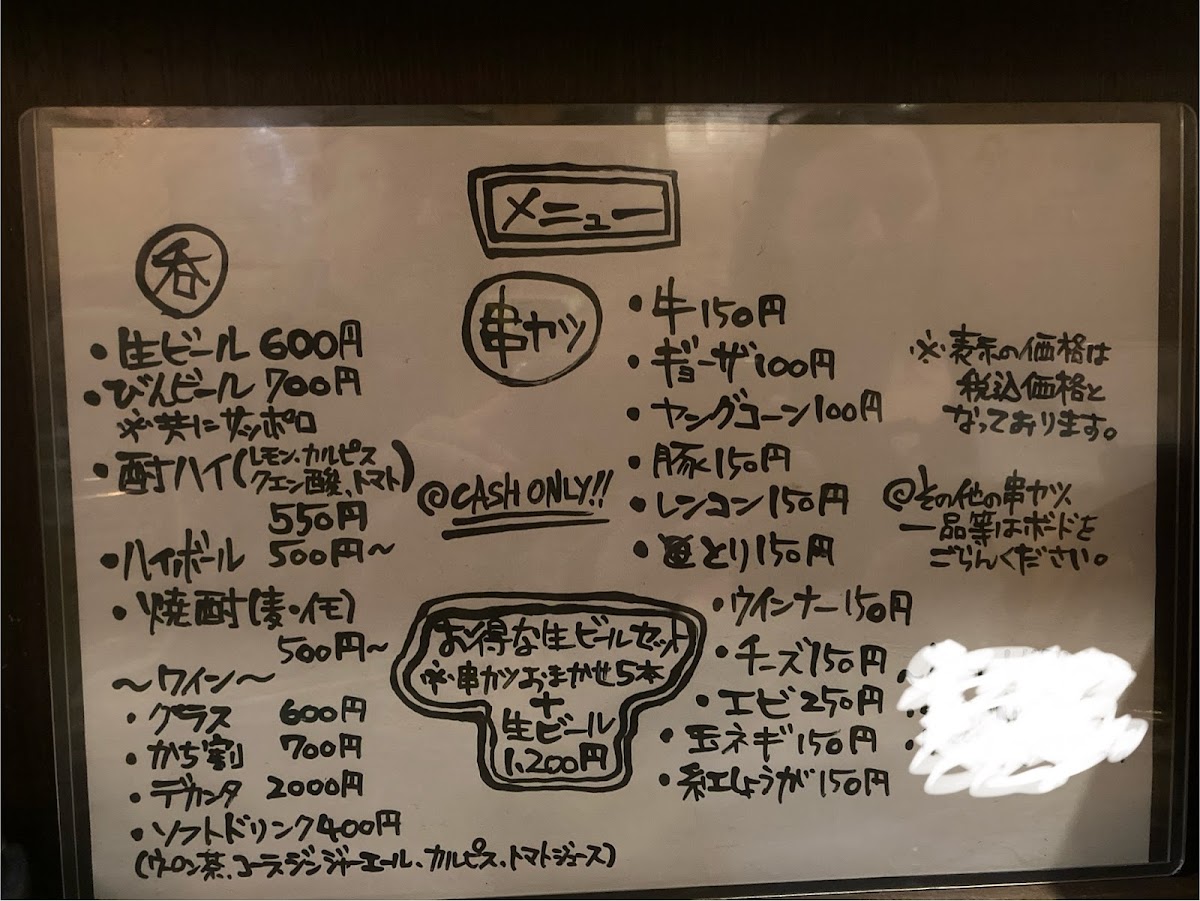 メニュー
呑
・生ビール 600円
・びんビール 700円
※共にサッポロ
・酎ハイ(レモン、カルピス
クエン酸、トマト)
550円
・ハイボール 500円～
・焼酎(麦・イモ)
500円～
～ワイン～
・グラス 600円
・かち割 700円
・デカンタ 2000円
・ソフトドリンク400円
(ウーロン茶、コーラ、ジンジャーエール、カルピス、トマトジュース)
串カツ
@CASH ONLY!!
お得な生ビールセット
※串カツおまかせ5本
+
生ビール
1,200円
・牛150円
・ギョーザ100円
・ヤングコーン100円
・豚150円
・レンコン150円
・とり150円
・ウインナー150円
・チーズ150円
・エビ250円
・玉ネギ150円
・紅しょうが150円
※表示の価格は
税込価格と
なっております。
@その他の串カツ、
一品等はボードを
ごらんください。